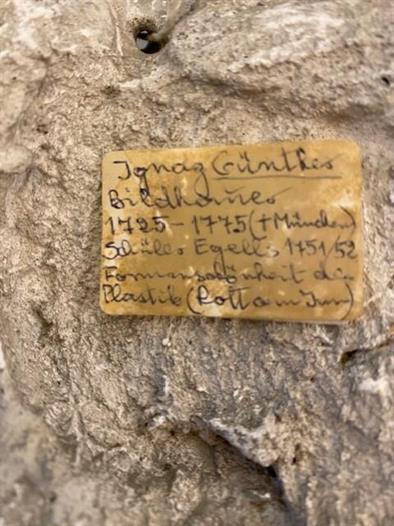 Ignaz Günther
Bildhauer
1725 - 1775 († München)
Schüler Egells 1751/52
Formenschönheit der
Plastik (Rott am Inn)